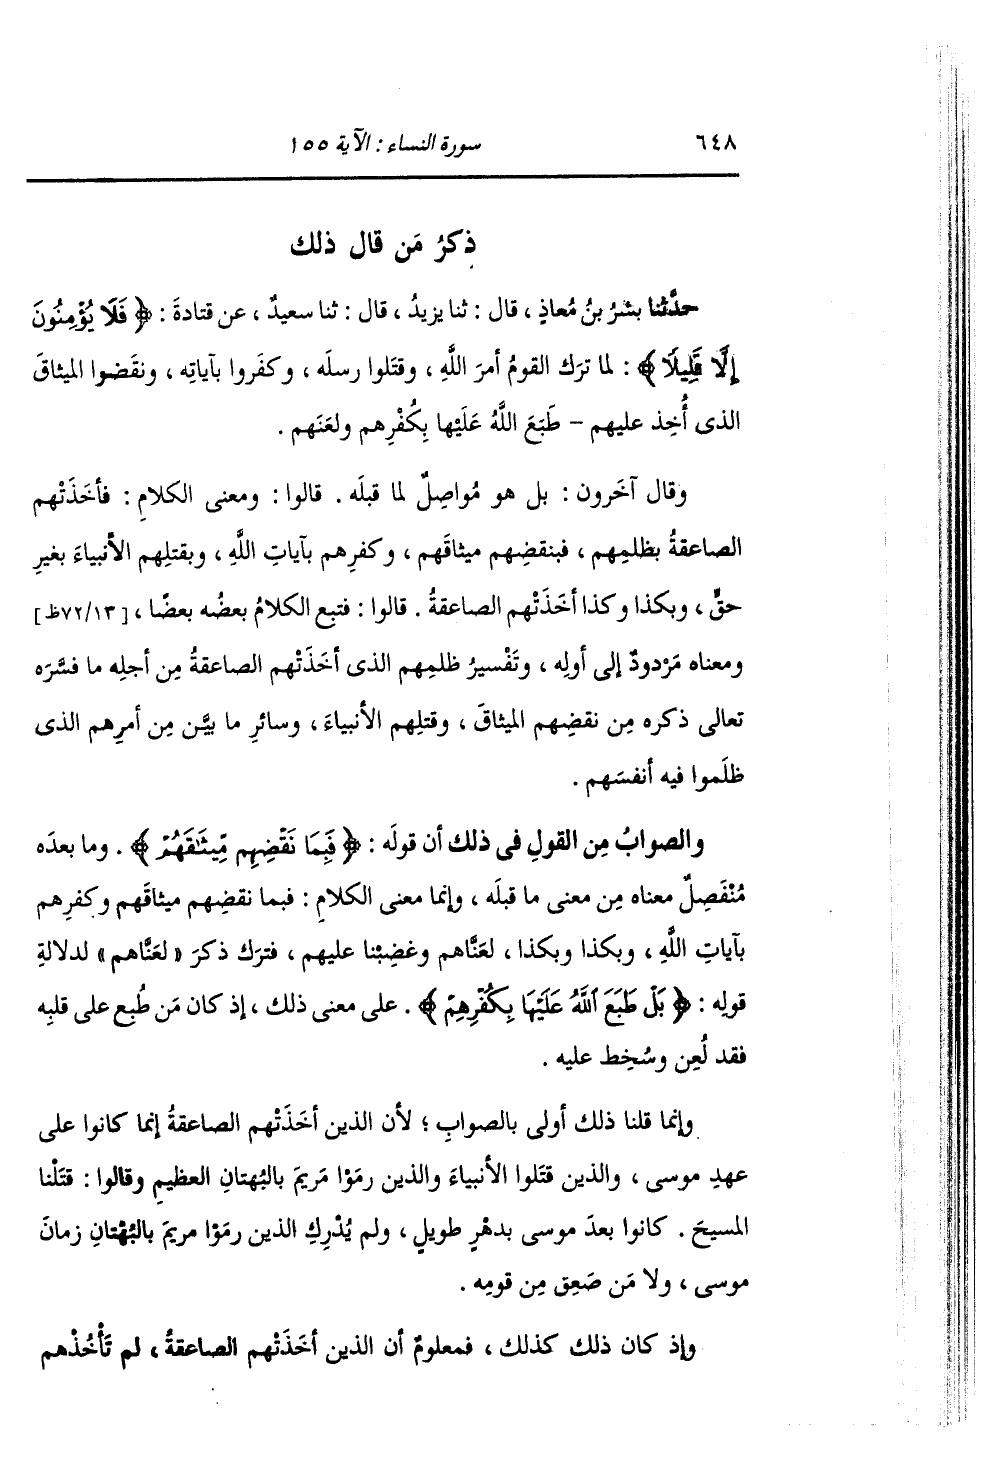 ٦٤٨ سورة النساء : الآية ١٥٥
ذكرُ مَن قال ذلك
حدَّثنا بشرُ بنُ مُعاذٍ ، قال : ثنا يزيدُ ، قال : ثنا سعيدٌ ، عن قتادةَ : ﴿ فَلَا يُؤْمِنُونَ
إِلَّا قَلِيلًا ﴾ : لما ترَك القومُ أمرَ اللَّهِ ، وقتَلوا رسلَه ، وكفَروا بآياتِه ، ونقَضوا الميثاقَ
الذى أُخِذ عليهم – طَبَعَ اللَّهُ عَلَيْها بِكُفْرِهم ولعَنَهم .
وقال آخَرون : بل هو مُواصِلٌ لما قبلَه . قالوا : ومعنى الكلامِ : فأخَذَتْهم
الصاعقةُ بظلمِهم ، فبنقضِهم ميثاقَهم ، وكفرِهم بآياتِ اللَّهِ ، وبقتلِهم الأنبياءَ بغيرِ
حقٍّ ، وبكذا وكذا أخَذَتْهم الصاعقةُ . قالوا : فتبع الكلامُ بعضُه بعضًا ، [٧٢/١٣ظ]
ومعناه مَرْدودٌ إلى أولِه ، وتَفْسيرُ ظلمِهم الذى أخَذَتْهم الصاعقةُ مِن أجلِه ما فسَّرَه
تعالى ذكره مِن نقضِهم الميثاقَ ، وقتلِهم الأنبياءَ ، وسائرِ ما بيَّن مِن أمرِهم الذى
ظلَموا فيه أنفسَهم .
والصوابُ مِن القولِ فى ذلك أن قولَه : ﴿ فَبِمَا نَقْضِهِم مِّيثَٰقَهُمْ ﴾ . وما بعدَه
مُنْفَصِلٌ معناه مِن معنى ما قبلَه ، وإنما معنى الكلامِ : فبما نقضِهم ميثاقَهم وكفرِهم
بآياتِ اللَّهِ ، وبكذا وبكذا ، لعَنَّاهم وغضِبْنا عليهم ، فترَك ذكرَ « لعَنَّاهم » لدلالةِ
قولِه : ﴿ بَلْ طَبَعَ ٱللَّهُ عَلَيْهَا بِكُفْرِهِمْ ﴾ . على معنى ذلك ، إذ كان مَن طُبِع على قلبِه
فقد لُعِن وسُخِط عليه .
وإنما قلنا ذلك أولى بالصوابِ ؛ لأن الذين أخَذَتْهم الصاعقةُ إنما كانوا على
عهدِ موسى ، والذين قتَلوا الأنبياءَ والذين رمَوْا مَريمَ بالبُهتانِ العظيمِ وقالوا : قتَلْنا
المسيحَ . كانوا بعدَ موسى بدهْرٍ طويلٍ ، ولم يُدْرِكِ الذين رمَوْا مريمَ بالبُهْتانِ زمانَ
موسى ، ولا مَن صَعِق مِن قومِه .
وإذ كان ذلك كذلك ، فمعلومٌ أن الذين أخَذَتْهم الصاعقةُ ، لم تَأْخُذْهم